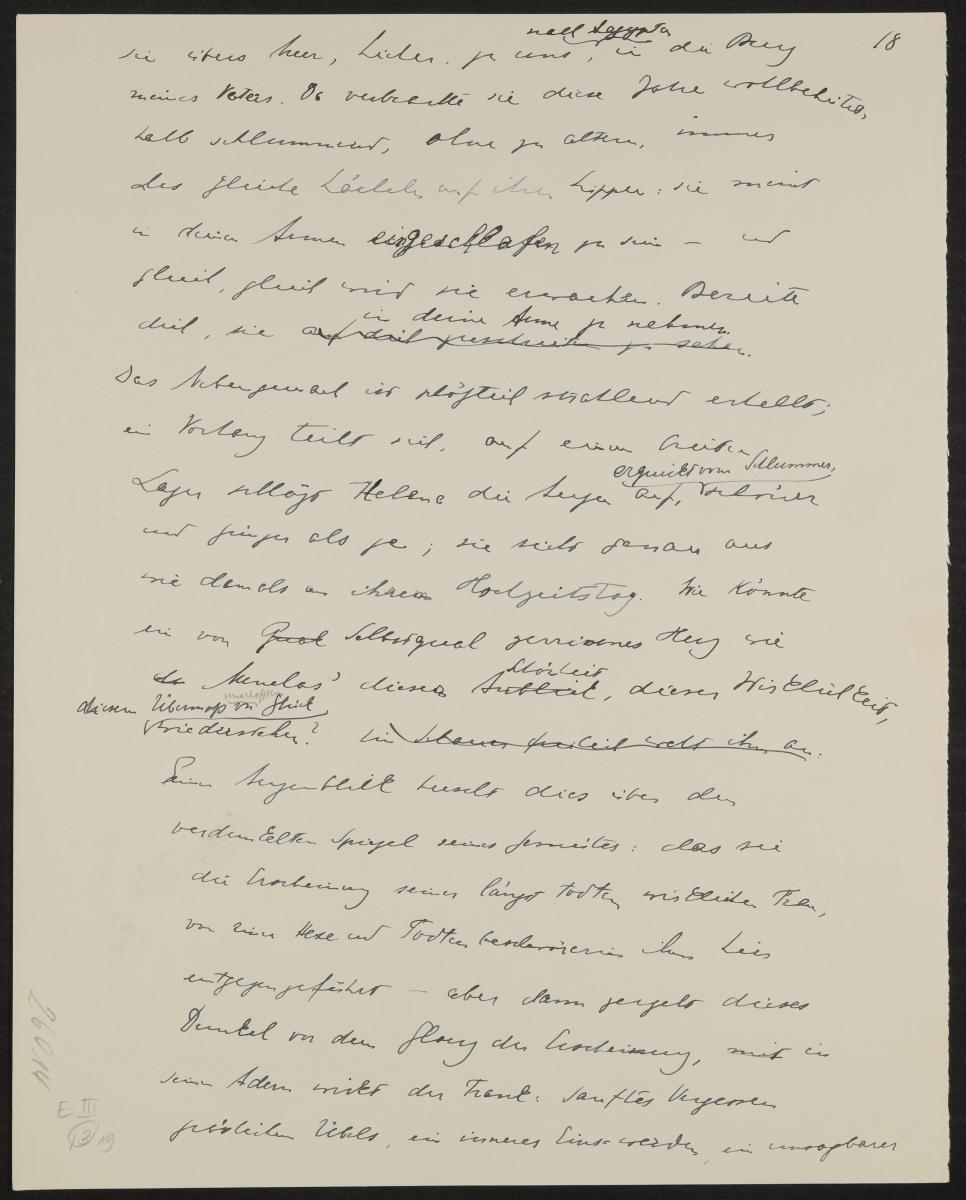 18
nach Aegypten
sie übers Meer, hieher, zu uns, in die Burg
meines Vaters. Da verbrachte sie diese Jahre wohlbehütet,
halb schlummernd, ohne zu altern, immer
das gleiche Lächeln auf ihren Lippen: sie meint
in deinen Armen eingeschlafen zu sein – und
gleich, gleich wird sie erwachen. Bereite
in deine Arme zu nehmen.
dich, sie auf dich zuschreiten zu sehen.
Das Nebengemach ist plötzlich strahlend erhellt;
ein Vorhang teilt sich, auf einem breiten
erquickt vom Schlummer,
Lager schlägt Helena die Augen auf, schöner
und jünger als je; sie sieht genau aus
wie damals an ihrem Hochzeitstag. Wie könnte
ein von Qual Selbstqual zerrissenes Herz wie
Schönheit
da Menelas' diesem Anblick, dieser Wirklichkeit,
unerhofften
diesem Übermaß von Glück,
wiederstehen? Ein Schauer weht ihn an.
Einen Augenblick huscht dies über den
verdunkelten Spiegel seines Gemütes: das sei
die Erscheinung seiner längst todten wirklichen Frau,
von einer Hexe und Todtenbeschwörerin ihm hier
entgegengeführt – aber dann zergeht dieses
Dunkel vor dem Glanz der Erscheinung, mit in
seinen Adern wirkt der Trank: sanftes Vergessen
gräslichen Übels, ein inneres Einswerden, ein unsagbarer
E III
3 19